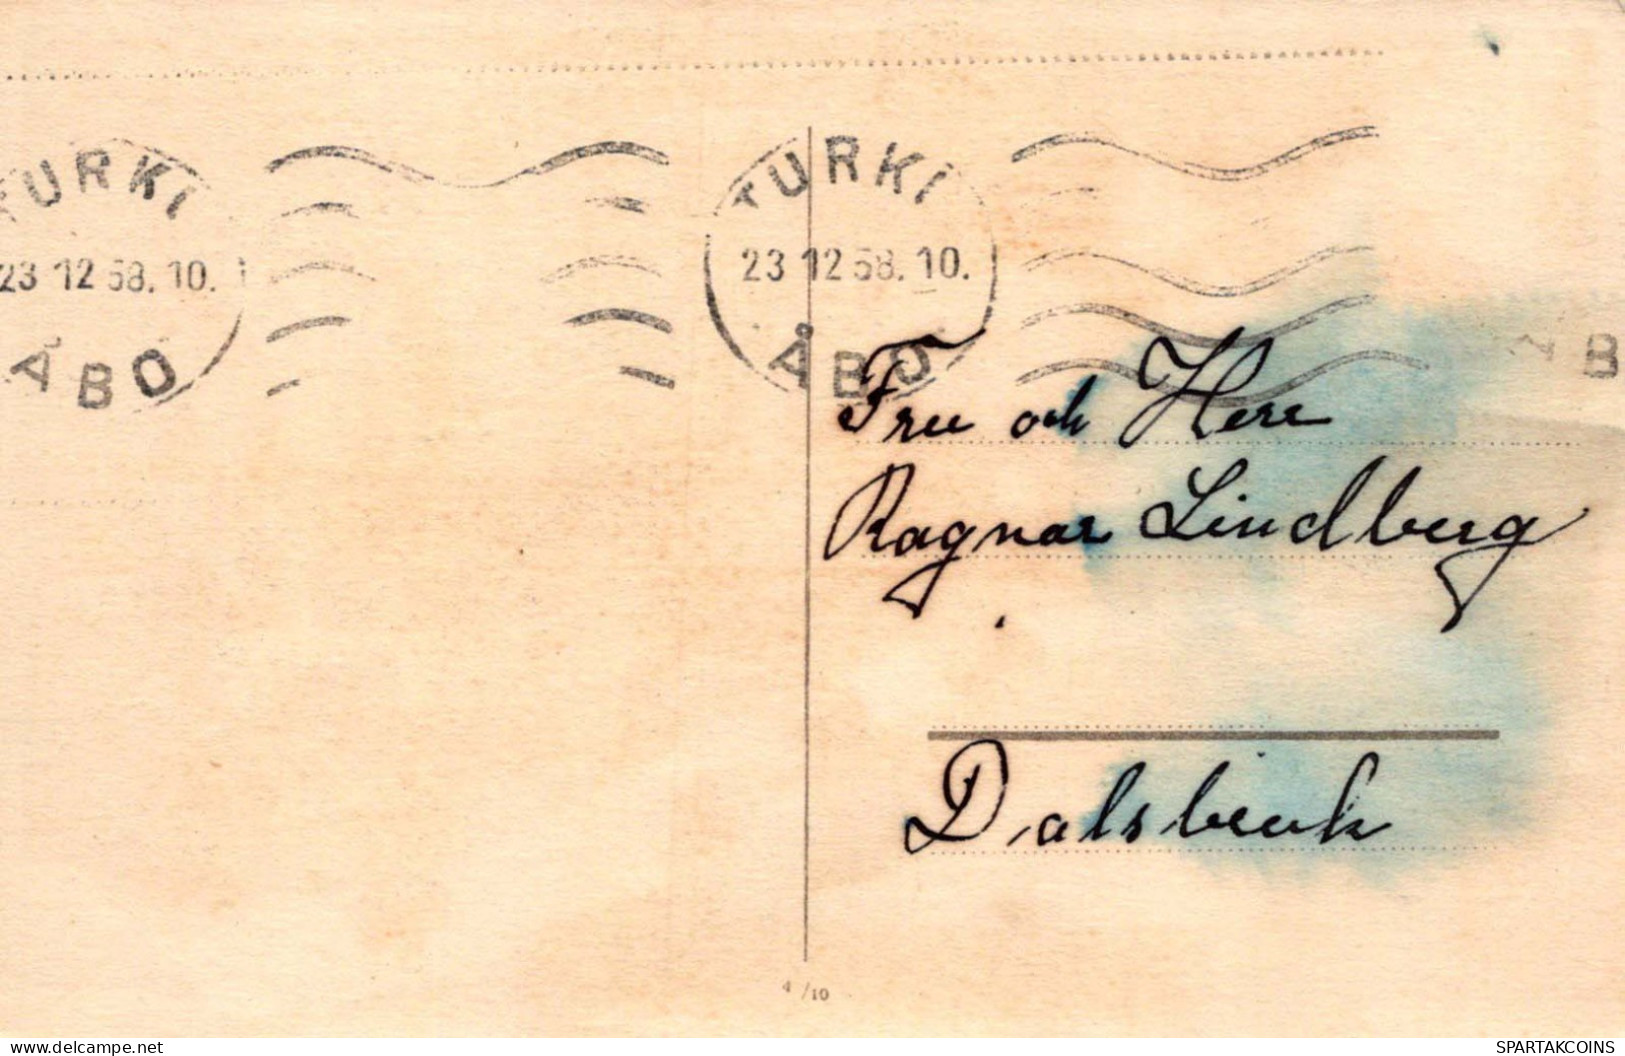 TURKI
23 12 58. 10.
ÅBO
TURKI
23 12 58. 10.
ÅBO
Fru och Herr
Ragnar Lindberg
Dalsbruk
4/10
delcampe.net
SPARTAKCOINS